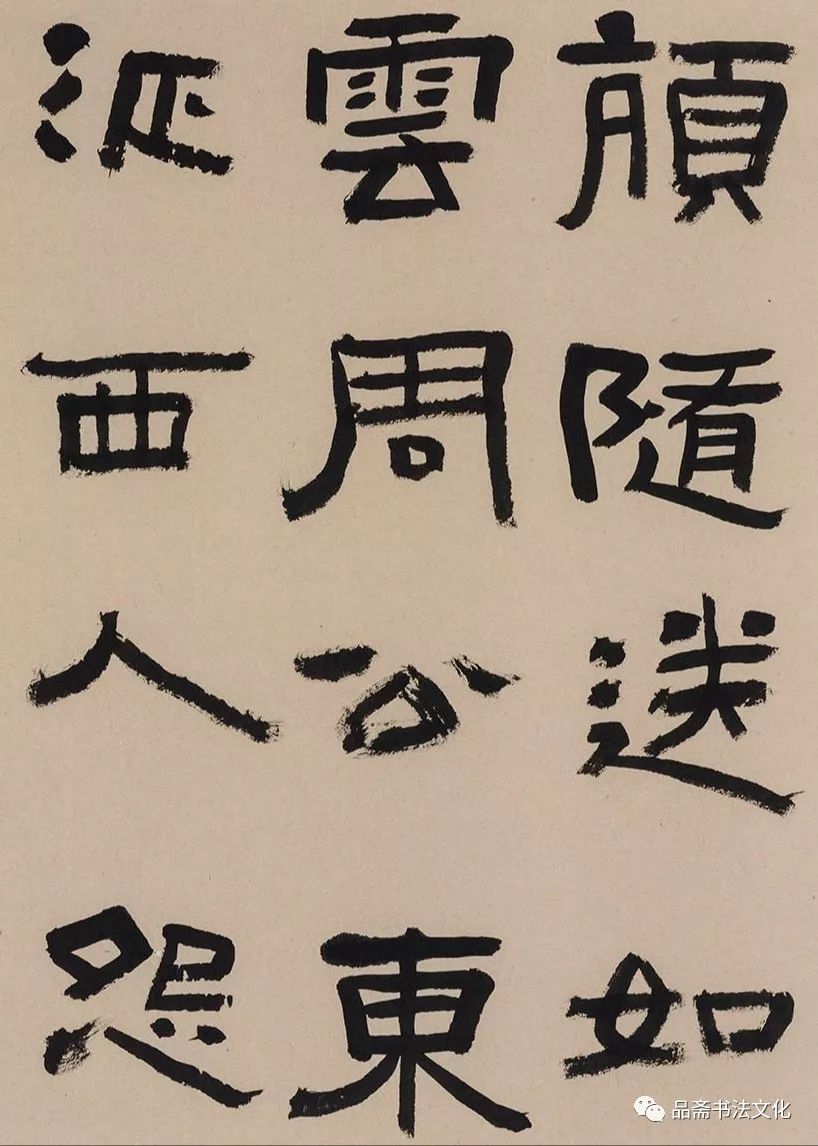 頏隨送如
雲周公東
征西人怨
品斋书法文化